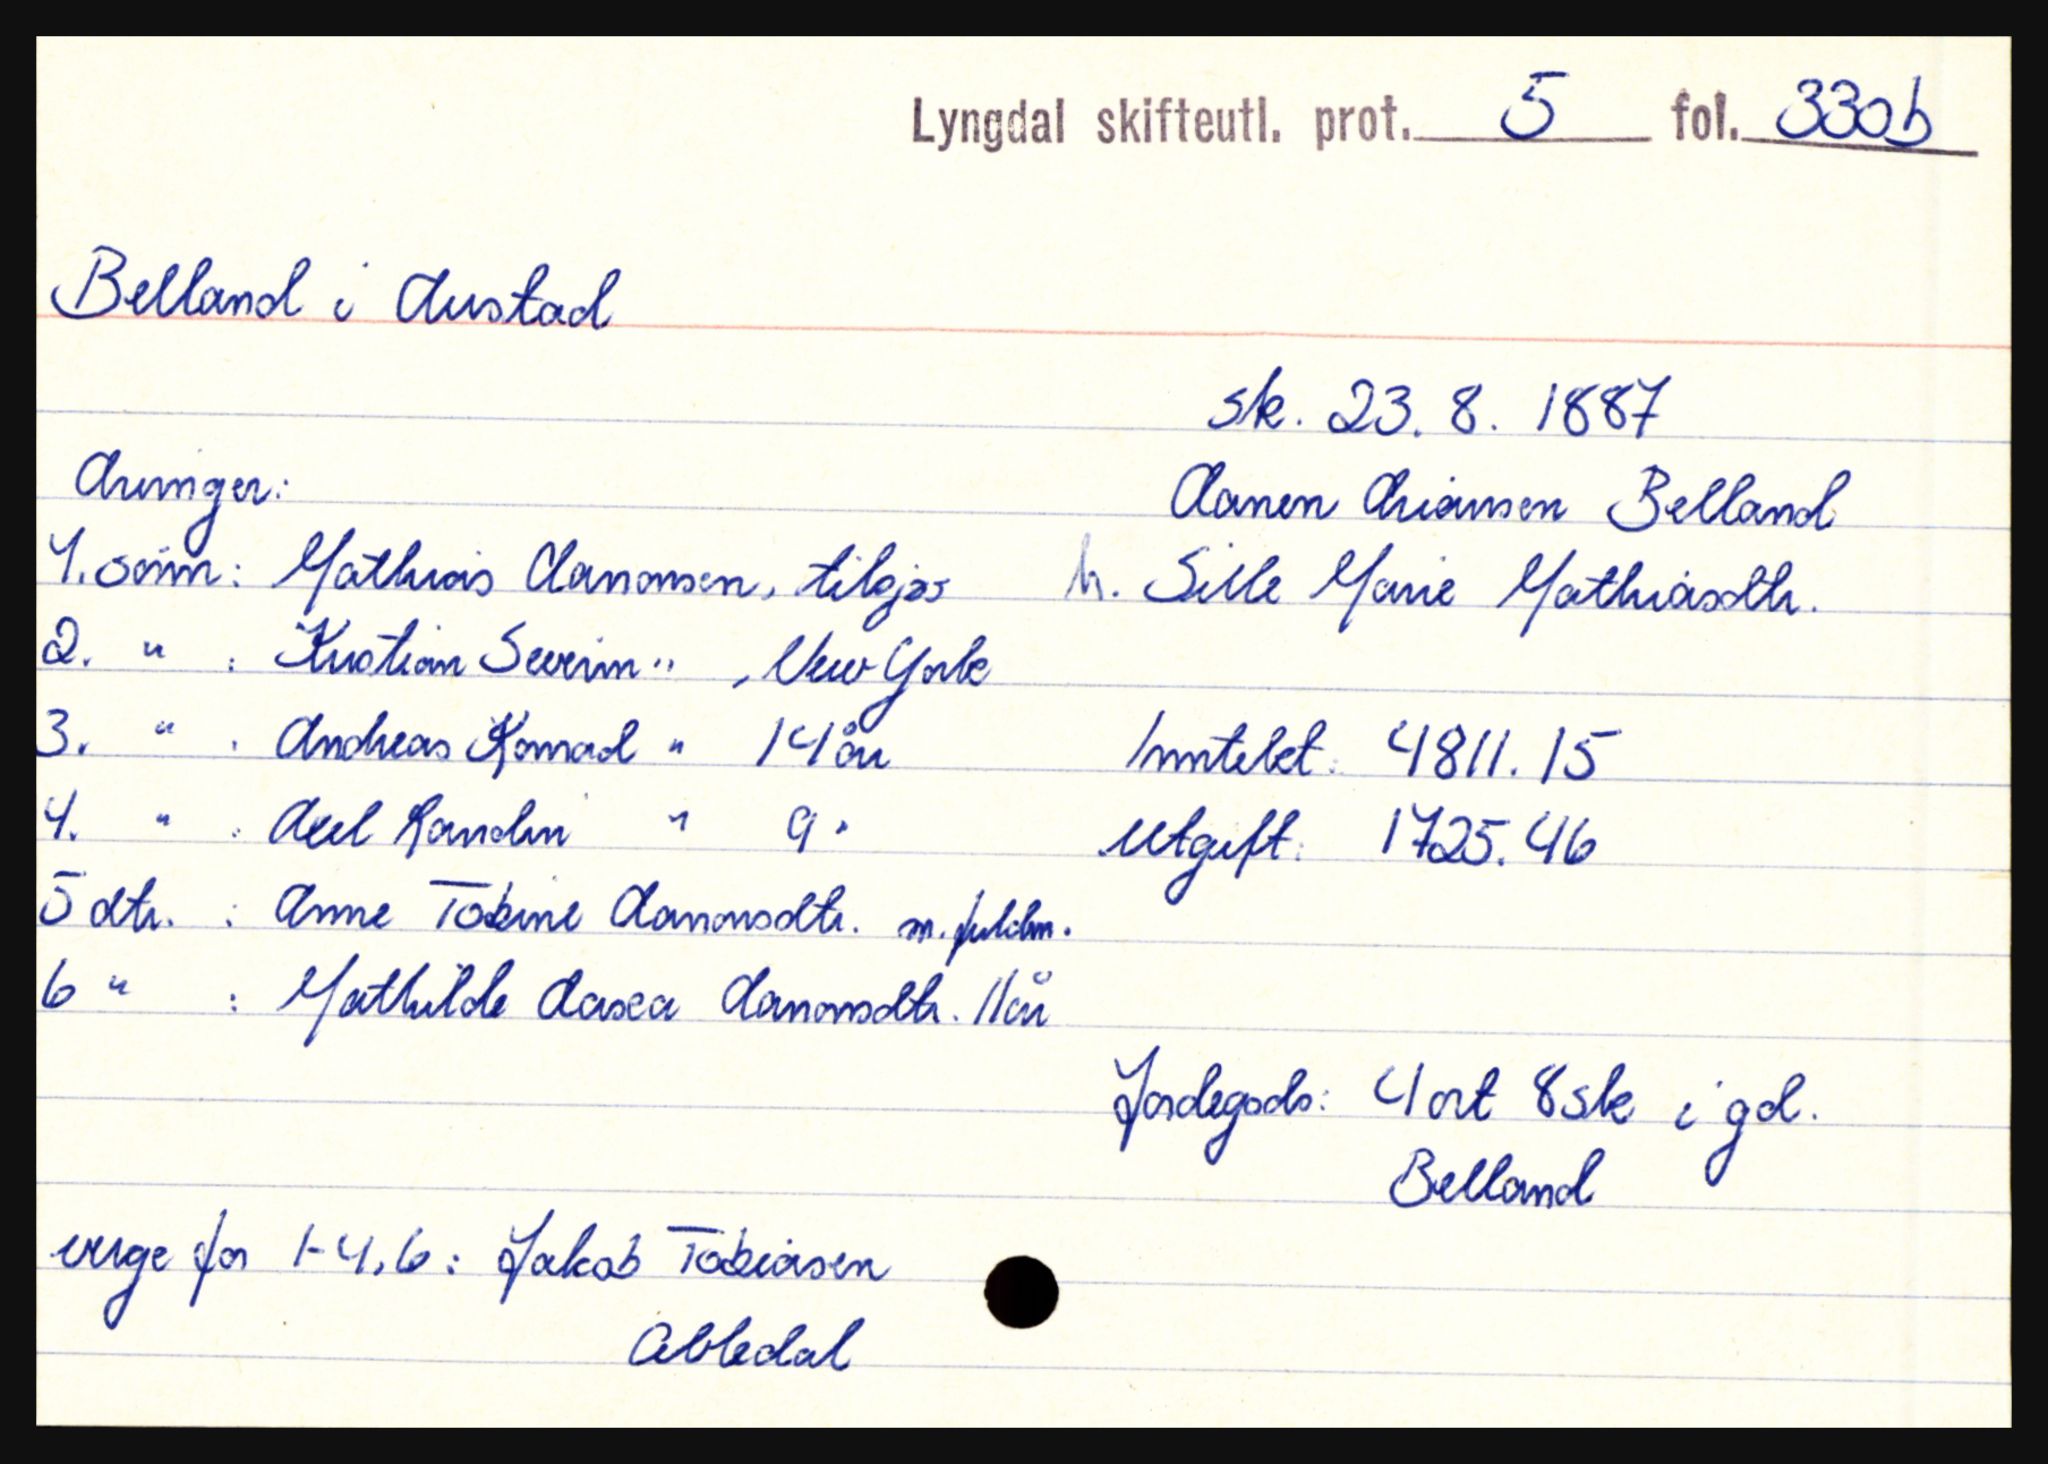 Lyngdal skifteutl. prot. 5 fol. 330b
Belland i Austad
sk. 23. 8. 1887
Aanen Ariansen Belland
h. Sille Marie Mathiasdtr.
Arvinger:
1. sønn: Mathias Aanonsen, tilsjøs
2. " : Kristian Severin " , New York
3. " : Andreas Konrad " 14 år
4. " : Axel Randin " 9 "
5 dtr. : Anne Tobine Aanonsdtr. m. fuldm.
6 " : Mathilde Aasea Aanonsdtr. 11 år
Inntekt: 4811.15
Utgift: 1725.46
Jordegods: 4 ort 8 sk i gd.
Belland
verge for 1-4, 6: Jakob Tobiasen
Abledal